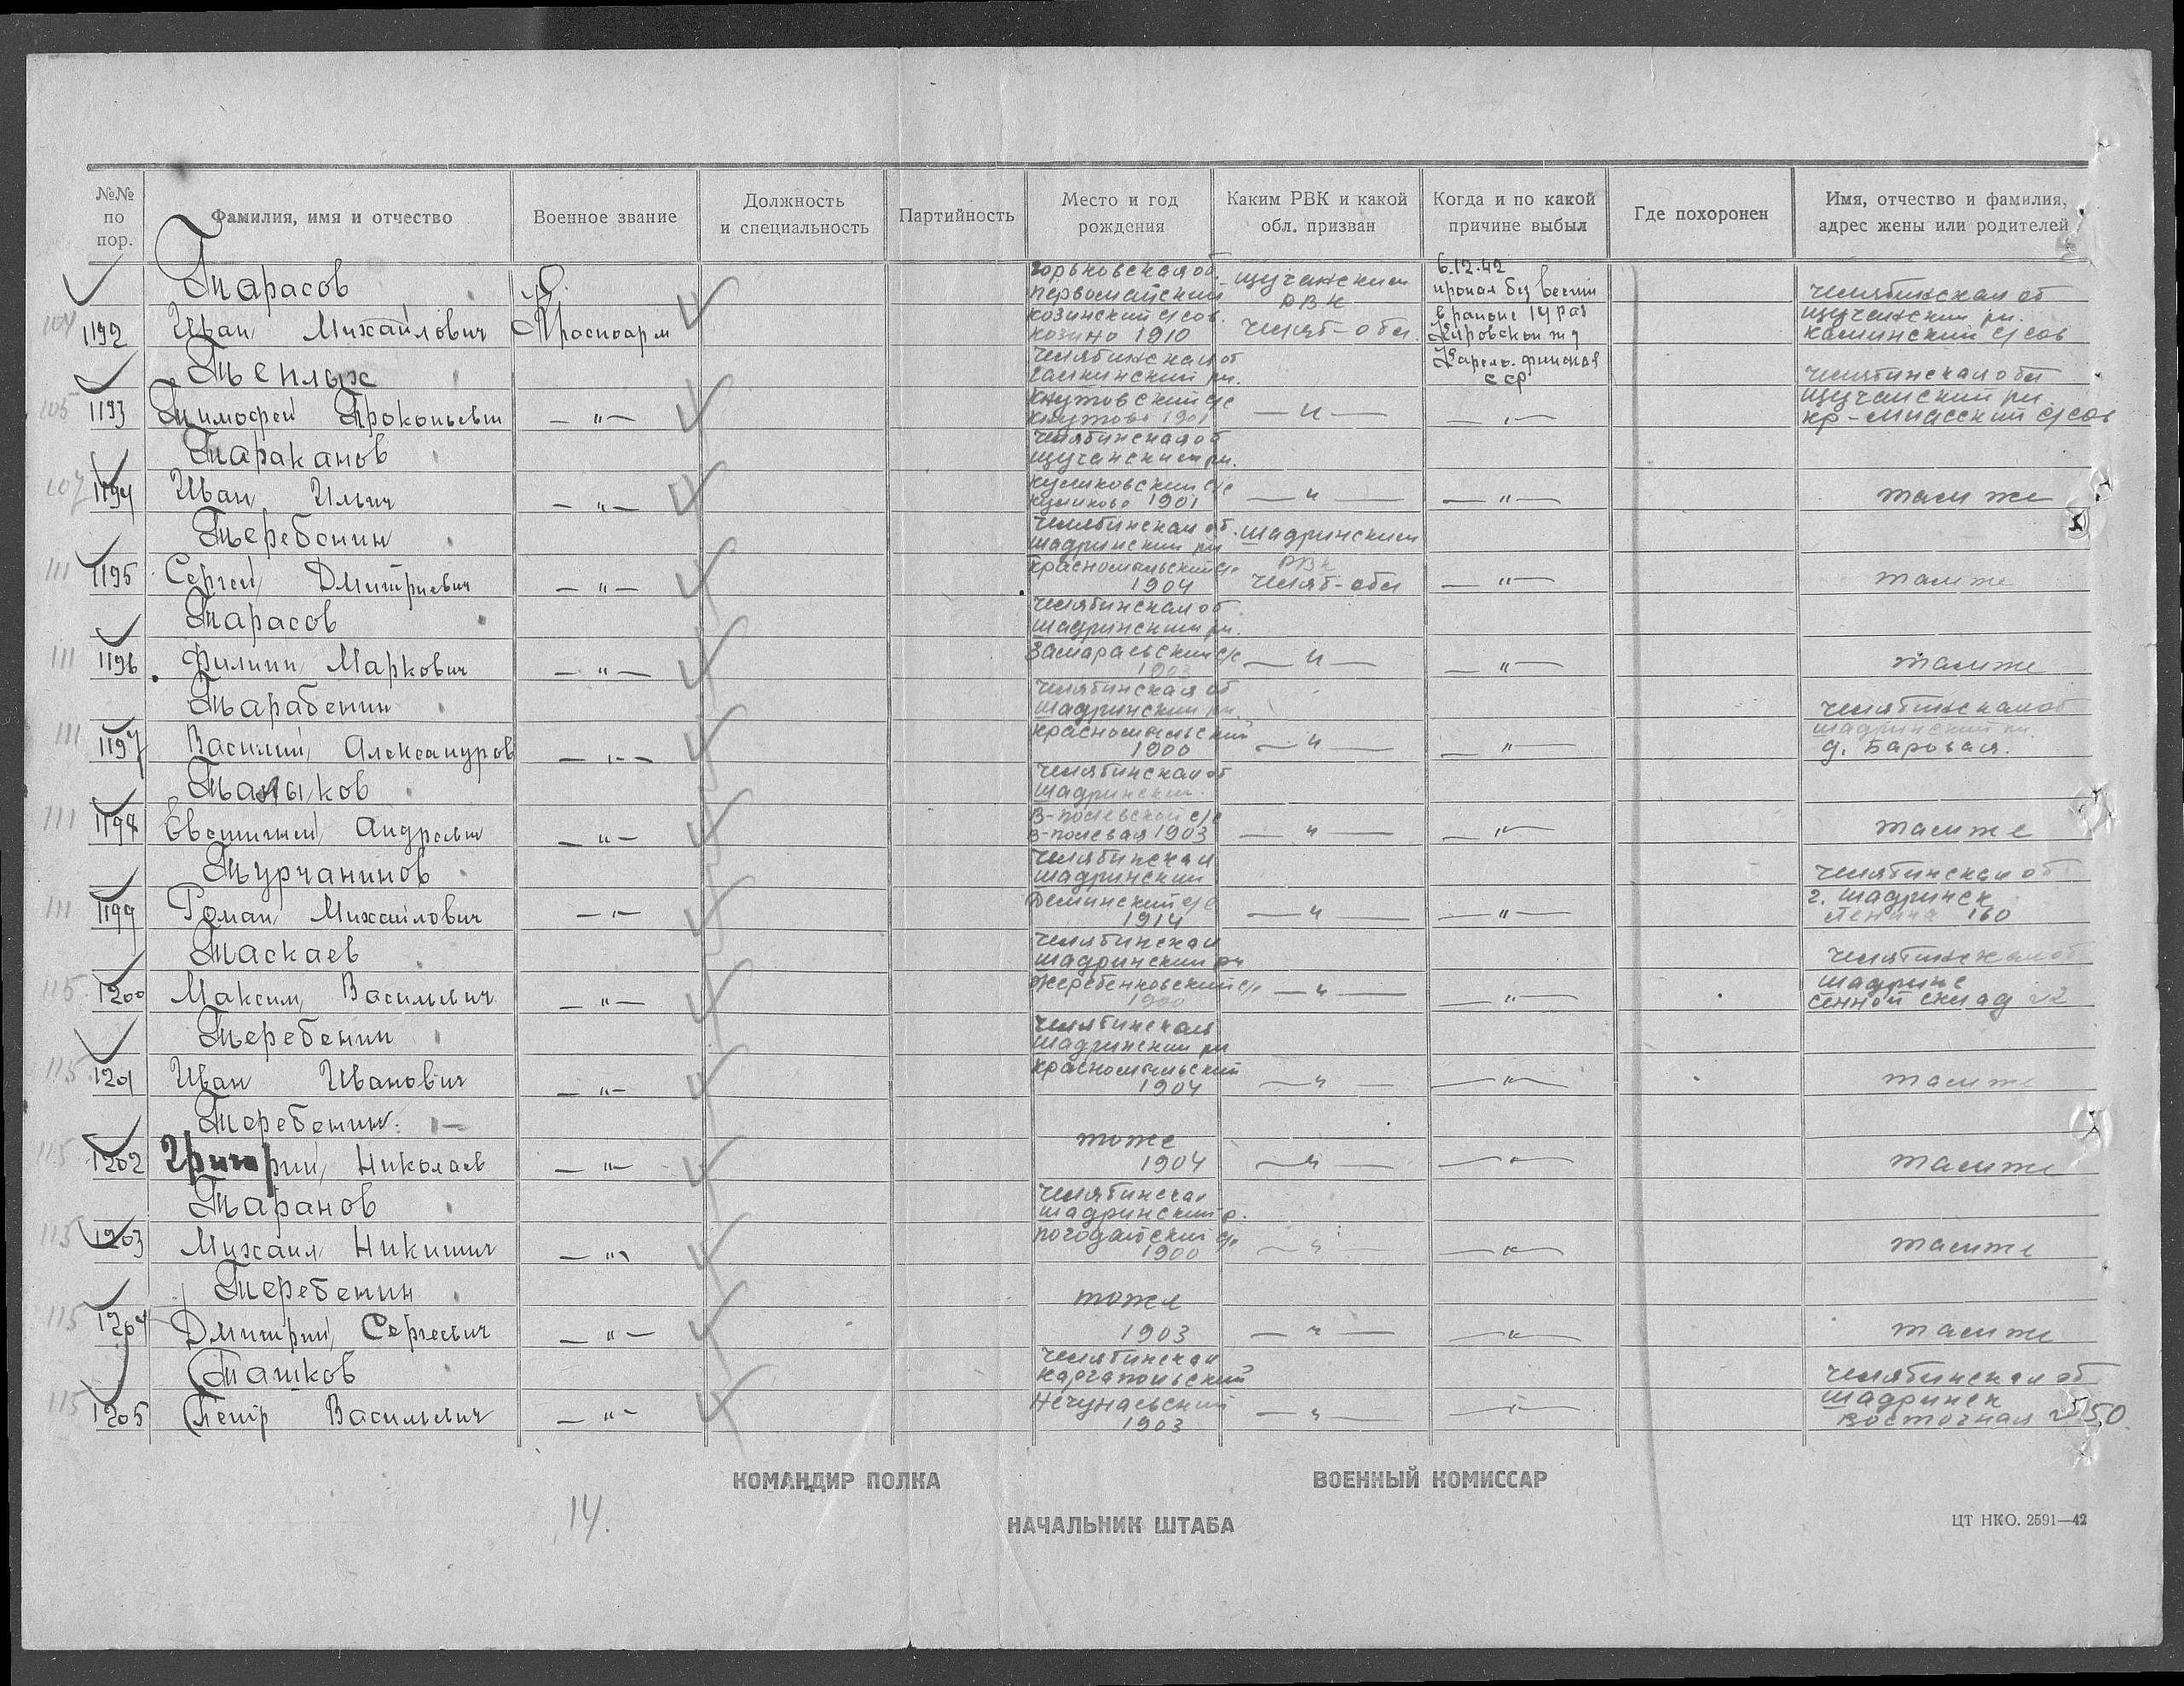 №№ по пор.
Фамилия, имя и отчество
Военное звание
Должность и специальность
Партийность
Место и год рождения
Каким РВК и какой обл. призван
Когда и по какой причине выбыл
Где похоронен
Имя, отчество и фамилия, адрес жены или родителей
104 1192 Тарасов
Иван Михайлович
Красноарм
Горьковская об.
Первомайский
Козинский с/сов.
Козино 1910
Щучанским
РВК
Челяб-обл.
6.12.42
пропал без вести
в районе 14 раз
Кировской ж д
Карело. финская
ССР
Челябинская об
Щучанский рн.
Каминский с/сов
105 1193
Тимофей Прокопьевич
— " —
Челябинская об
1901
— " —
— " —
Челябинская обл
Щучанский рн
кр-Миасский с/сов
107 1194 Тараканов
Иван Ильич
— " —
Челябинская об
Щучанский рн.
Куликовский с/с
Куликово 1901
— " —
— " —
там же
111 1195 Теребенин
Сергей Дмитриевич
— " —
Челябинская об.
Шадринский рн
Красномыльский с/с
1904
Шадринским
РВК
Челяб-обл
— " —
там же
111 1196 Тарасов
Филипп Маркович
— " —
Челябинская об
Шадринский рн.
Замараевский с/с
1903
— " —
— " —
там же
111 1197 Тарабенин
Василий Александров
— " —
Челябинская об
Шадринский рн.
Красномыльский
1900
— " —
— " —
Челябинская об
Шадринский рн.
д. Баровая.
111 1198
Андреевич
— " —
Челябинская об
Шадринский
В-полевской с/с
В-полевая 1903
— " —
— " —
там же
111 1199 Турчанинов
Роман Михайлович
— " —
Челябинская
Шадринский
Деминский с/с
1914
— " —
— " —
Челябинская об
г. Шадринск
Ленина 160
115 1200 Таскаев
Максим Васильевич
— " —
Челябинская
Шадринский рн
Жеребенковский с/с
1900
— " —
— " —
Челябинская об
Шадринс
Сенной склад
115 1201 Теребенин
Иван Иванович
— " —
Челябинская
Шадринский рн
Красномыльский
1904
— " —
— " —
там же
115 1202 Теребенин
Григорий Николаев
— " —
тоже
1904
— " —
— " —
там же
115 1203 Таранов
Михаил Никитич
— " —
Челябинская
Шадринский р.
Погодайский с/с
1900
— " —
— " —
там же
115 1204 Теребенин
Дмитрий Сергеевич
— " —
тоже
1903
— " —
— " —
там же
115 1205 Ташков
Петр Васильевич
— " —
Челябинская
Каргапольский
1903
— " —
— " —
Челябинская об
Шадринск
Восточная
КОМАНДИР ПОЛКА
ВОЕННЫЙ КОМИССАР
НАЧАЛЬНИК ШТАБА
14.
ЦТ НКО. 2591—42